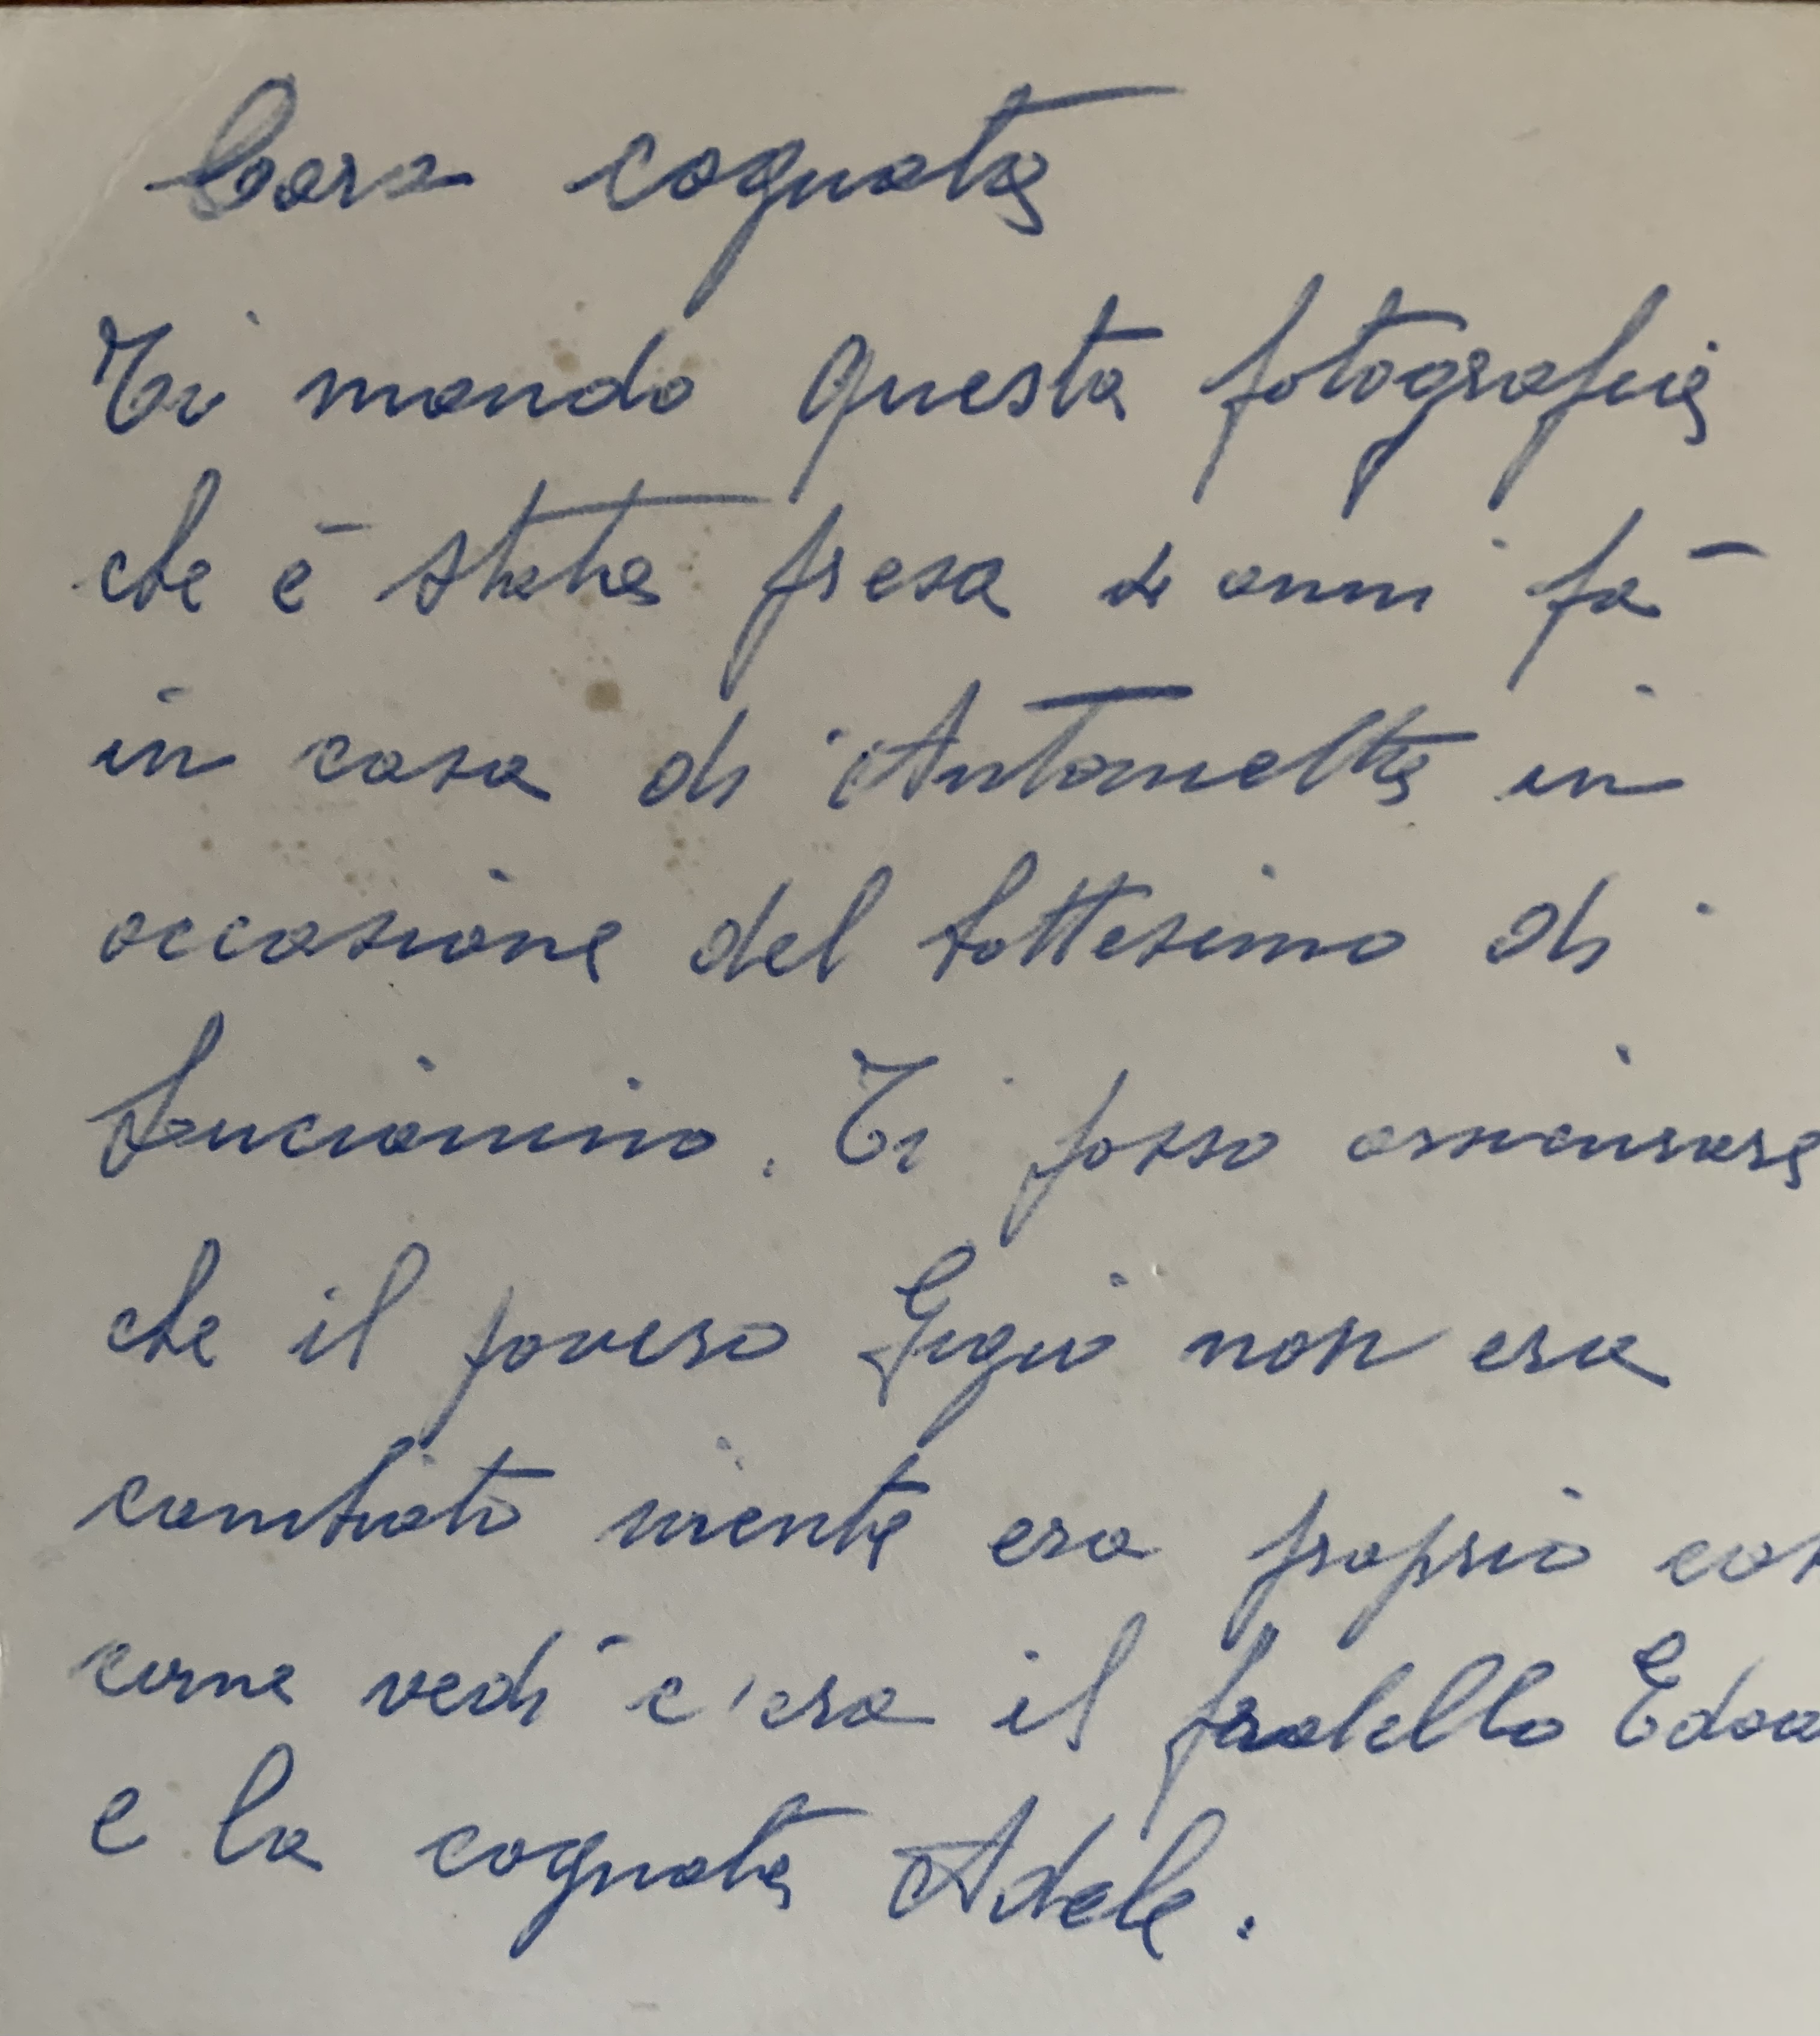 Cara cognata
Ti mando questa fotografia
che è stata presa 4 anni fà
in casa di Antonietta in
occasione del battesimo di
Lucianino. Ti posso assicurare
che il povero Gigio non era
cambiato niente era proprio cos
come vedi c'era il fratello Edoa
e la cognata Adele.